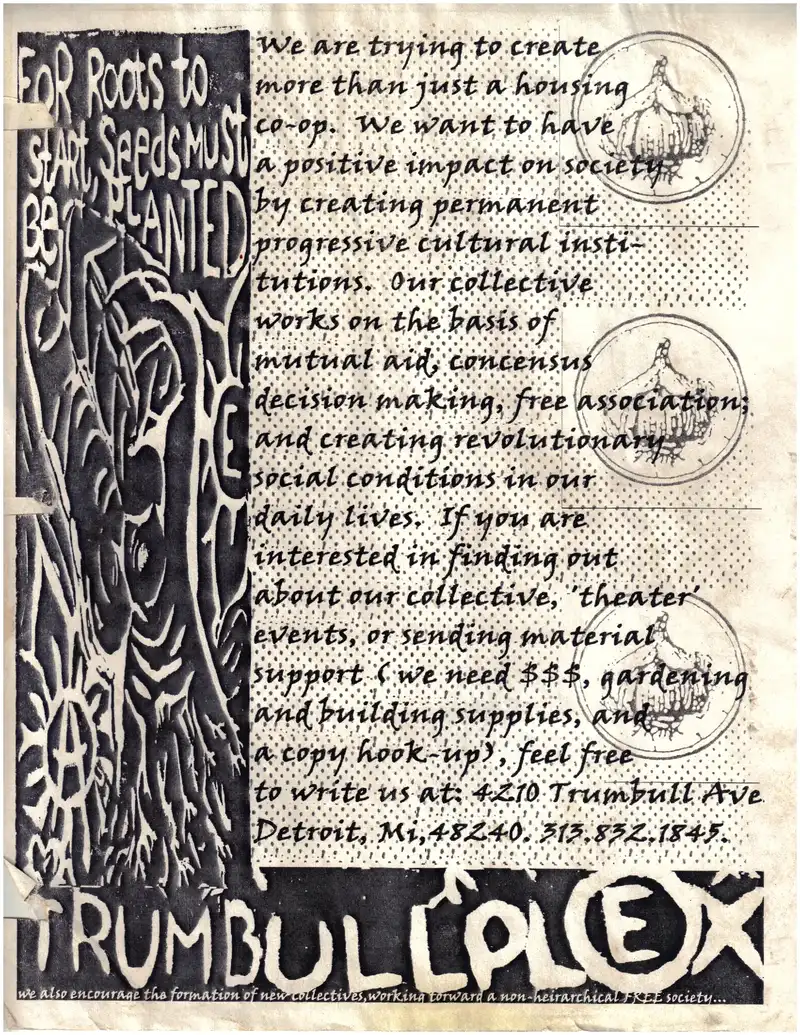 FOR Roots to
stARt, Seeds MUSt
BE PLANTED
We are trying to create
more than just a housing
co-op. We want to have
a positive impact on society
by creating permanent
progressive cultural insti-
tutions. Our collective
works on the basis of
mutual aid, concensus
decision making, free association;
and creating revolutionary
social conditions in our
daily lives. If you are
interested in finding out
about our collective, 'theater'
events, or sending material
support ( we need $$$, gardening
and building supplies, and
a copy hook-up), feel free
to write us at: 4210 Trumbull Ave
Detroit, Mi,48240. 313.832.1845.
A
TRUMBULLPLEX
we also encourage the formation of new collectives,working torward a non-heirarchical FREE society...